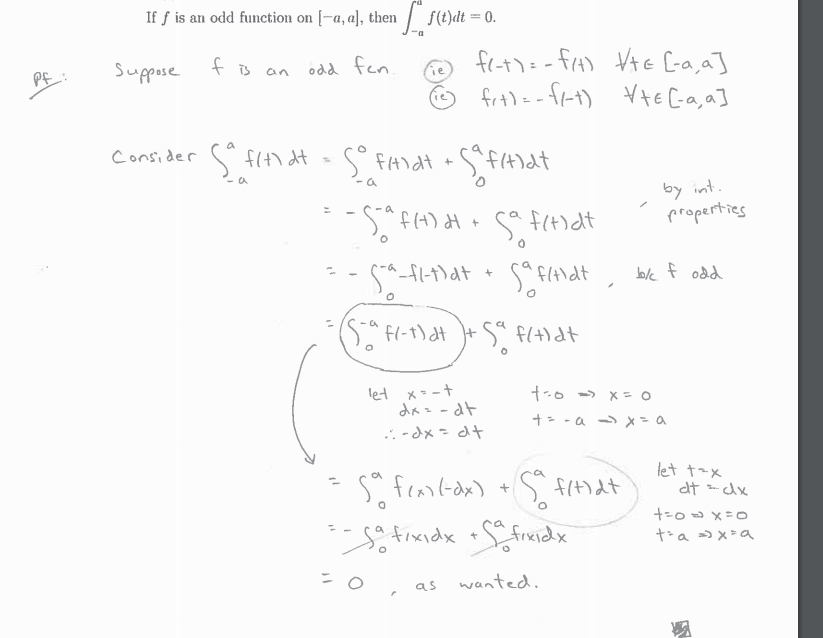 If f is an odd function on [−a, a], then ∫_{−a}^{a} f(t)dt = 0.
Pf: Suppose f is an odd fcn. (ie) f(-t) = -f(t) ∀t∈[-a,a]
(ie) f(t) = -f(-t) ∀t∈[-a,a]
Consider ∫_{-a}^{a} f(t)dt = ∫_{-a}^{0} f(t)dt + ∫_{0}^{a} f(t)dt
= -∫_{0}^{-a} f(t)dt + ∫_{0}^{a} f(t)dt , by int. properties
= -∫_{0}^{-a} -f(-t)dt + ∫_{0}^{a} f(t)dt , b/c f odd
= ∫_{0}^{-a} f(-t)dt + ∫_{0}^{a} f(t)dt
let x = -t t=0 ⇒ x=0
dx = -dt t=-a ⇒ x=a
∴ -dx = dt
= ∫_{0}^{a} f(x)(-dx) + ∫_{0}^{a} f(t)dt let t=x
dt = dx
t=0 ⇒ x=0
= -∫_{0}^{a} f(x)dx + ∫_{0}^{a} f(x)dx t=a ⇒ x=a
= 0 , as wanted.